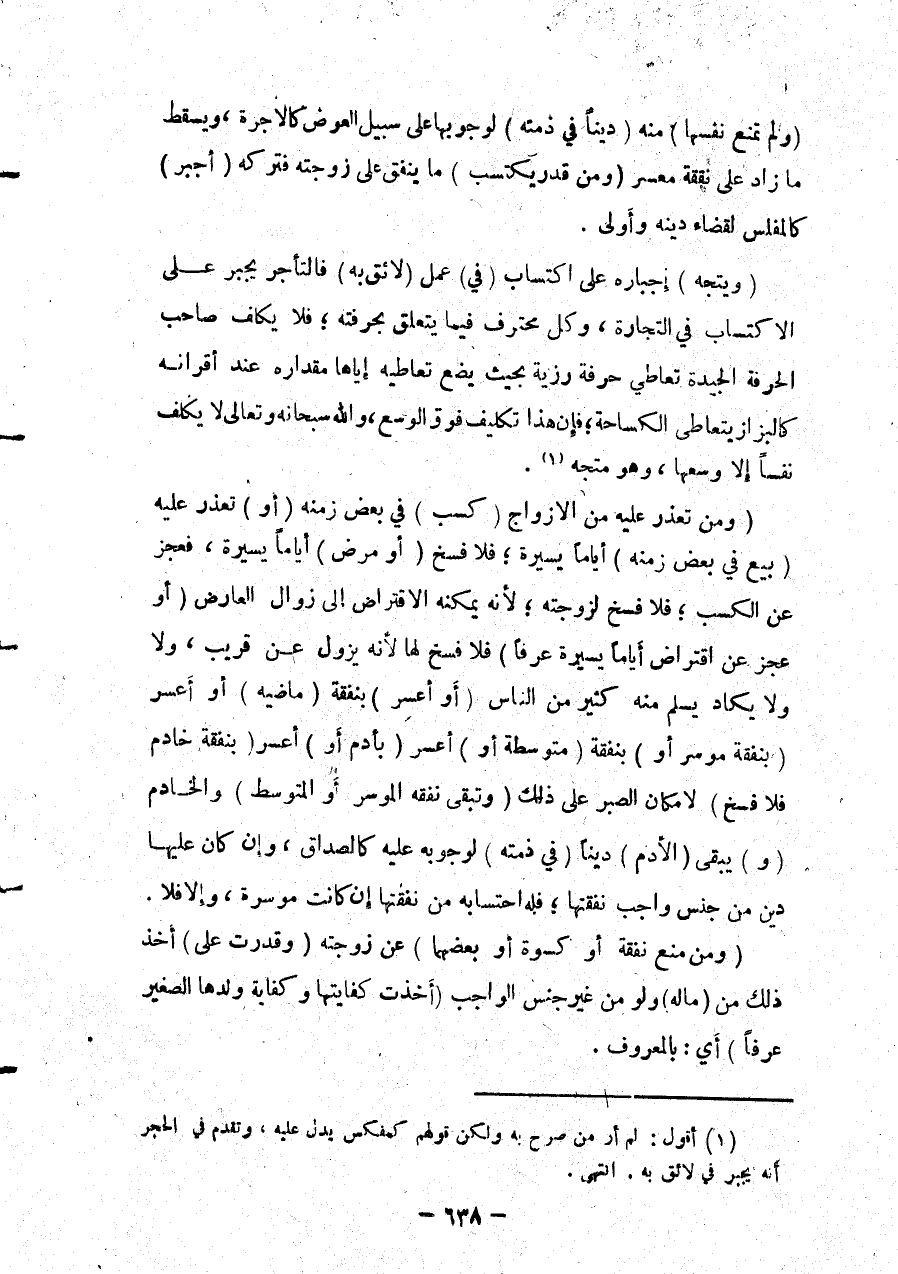 (ولم تمنع نفسها) منه (ديناً في ذمته) لوجوبها على سبيل العوض كالأجرة ، ويسقط
ما زاد على نفقة معسر (ومن قدر يكتسب) ما ينفق على زوجته فتركه (أجبر)
كالمفلس لقضاء دينه وأولى .
(ويتجه) إجباره على اكتساب (في) عمل (لائق به) فالتأجر يجبر عـلى
الاكتساب في التجارة ، وكل محترف فيما يتعلق بحرفته ؛ فلا يكلف صاحب
الحرفة الجيدة تعاطي حرفة رزية بحيث يضع تعاطيه إياها مقداره عند أقرانـه
كالبزاز يتعاطى الكساحة ؛ فإن هذا تكليف فوق الوسع ، والله سبحانه وتعالى لا يكلف
نفساً إلا وسعها ، وهو متجه (١) .
(ومن تعذر عليه من الازواج (كسب) في بعض زمنه (أو) تعذر عليه
(بيع في بعض زمنه) أياماً يسيرة ؛ فلا فسخ (أو مرض) أياماً يسيرة ، فعجز
عن الكسب ؛ فلا فسخ لزوجته ؛ لأنه يمكنه الاقتراض إلى زوال العارض (أو
عجز عن اقتراض أياماً يسيرة عرفاً) فلا فسخ لها لأنه يزول عـن قريب ، ولا
ولا يكاد يسلم منه كثير من الناس (أو أعسر) بنفقة (ماضيه) أو أعسر
(بنفقة موسر أو) بنفقة (متوسطة أو) أعسر (بأدم أو) أعسر (بنفقة خادم
فلا فسخ) لامكان الصبر على ذلك (وتبقى نفقه الموسر أو المتوسط) والخـادم
(و) يبقى (الأدم) ديناً (في ذمته) لوجوبه عليه كالصداق ، وإن كان عليهـا
دين من جنس واجب نفقتها ؛ فله احتسابه من نفقتها إن كانت موسرة ، وإلا فلا .
(ومن منع نفقة أو كسوة أو بعضها) عن زوجته (وقدرت على) أخذ
ذلك من (ماله) ولو من غير جنس الواجب (أخذت كفايتها وكفاية ولدها الصغير
عرفاً) أي : بالمعروف .
(١) أقول : لم أر من صرح به ولكن قولهم كمفلس يدل عليه ، وتقدم في الحجر
أنه يجبر في لائق به . انتهى .
– ٦٣٨ –